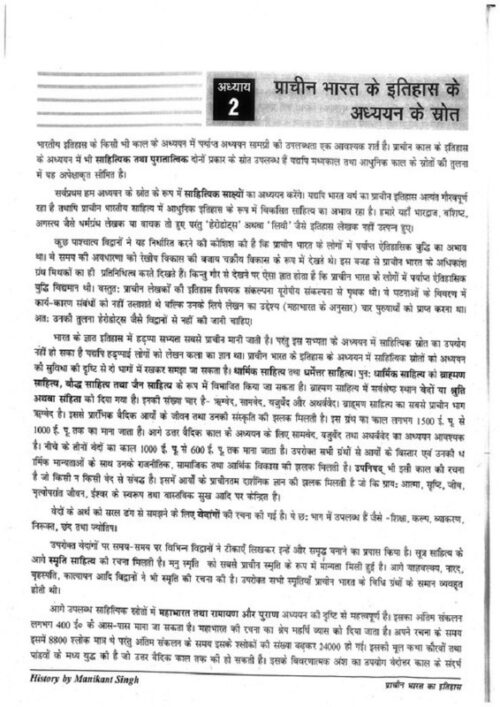 अध्याय
2
प्राचीन भारत के इतिहास के
अध्ययन के स्रोत
भारतीय इतिहास के किसी भी काल के अध्ययन में पर्याप्त अध्ययन सामग्री की उपलब्धता एक आवश्यक शर्त है। प्राचीन काल के इतिहास
के अध्ययन में भी साहित्यिक तथा पुरातात्विक दोनों प्रकार के स्रोत उपलब्ध हैं यद्यपि मध्यकाल तथा आधुनिक काल के स्रोतों की तुलना
में यह अपेक्षाकृत सीमित है।
सर्वप्रथम हम अध्ययन के स्रोत के रूप में साहित्यिक साक्ष्यों का अध्ययन करेंगे। यद्यपि भारत वर्ष का प्राचीन इतिहास अत्यंत गौरवपूर्ण
रहा है तथापि प्राचीन भारतीय साहित्य में आधुनिक इतिहास के रूप में विकसित साहित्य का अभाव रहा है। हमारे यहाँ भारद्वाज, वशिष्ट,
अगस्त्य जैसे धर्मग्रंथ लेखक या वाचक तो हुए परंतु 'हेरोडोट्स' अथवा 'लिवी' जैसे इतिहास लेखक नहीं उत्पन्न हुए।
कुछ पाश्चात्य विद्वानों ने यह निर्धारित करने की कोशिश की है कि प्राचीन भारत के लोगों में पर्याप्त ऐतिहासिक बुद्धि का अभाव
था। वे समय की अवधारणा को रेखीय विकास की बजाय चक्रीय विकास के रूप में देखते थे। इस वजह से प्राचीन भारत के अधिकांश
ग्रंथ मिथकों का ही प्रतिनिधित्व करते दिखते हैं। किन्तु गौर से देखने पर ऐसा ज्ञात होता है कि प्राचीन भारत के लोगों में पर्याप्त ऐतिहासिक
बुद्धि विद्यमान थी। वस्तुतः प्राचीन लेखकों की इतिहास विषयक संकल्पना यूरोपीय संकल्पना से पृथक थी। ये घटनाओं के विवरण में
कार्य-कारण संबंधों को नहीं तलाशते थे बल्कि उनके लिये लेखन का उद्देश्य (महाभारत के अनुसार) चार पुरुषार्थों को प्राप्त करना था।
अतः उनकी तुलना हेरोडोट्स जैसे विद्वानों से नहीं की जानी चाहिए।
भारत के ज्ञात इतिहास में हड़प्पा सभ्यता सबसे प्राचीन मानी जाती है। परंतु इस सभ्यता के अध्ययन में साहित्यिक स्रोत का उपयोग
नहीं हो सका है यद्यपि हड़प्पाई लोगों को लेखन कला का ज्ञान था। प्राचीन भारत के इतिहास के अध्ययन में साहित्यिक स्रोतों को अध्ययन
की सुविधा की दृष्टि से दो भागों में रखकर समझा जा सकता है। धार्मिक साहित्य तथा धर्मेत्तर साहित्य। पुनः धार्मिक साहित्य को ब्राह्मण
साहित्य, बौद्ध साहित्य तथा जैन साहित्य के रूप में विभाजित किया जा सकता है। ब्राह्मण साहित्य में सर्वश्रेष्ठ स्थान वेदों या श्रुति
अथवा संहिता को दिया गया है। इनकी संख्या चार है- ऋग्वेद, सामवेद, यजुर्वेद और अथर्ववेद। ब्राह्मण साहित्य का सबसे प्राचीन भाग
ऋग्वेद है। इससे प्रारंभिक वैदिक आर्यों के जीवन तथा उनकी संस्कृति की झलक मिलती है। इस ग्रंथ का काल लगभग 1500 ई. पू. से
1000 ई. पू. तक का माना जाता है। आगे उत्तर वैदिक काल के अध्ययन के लिए सामवेद, यजुर्वेद तथा अथर्ववेद का अध्ययन आवश्यक
है। नीचे के तीनों वेदों का काल 1000 ई. पू. से 600 ई. पू. तक माना जाता है। उपरोक्त सभी ग्रंथों से आर्यों के विस्तार एवं उनकी ध
र्मिक मान्यताओं के साथ उनके राजनीतिक, सामाजिक तथा आर्थिक विकास की झलक मिलती है। उपनिषद् भी इसी काल की रचना
है जो किसी न किसी वेद से संबद्ध है। इसमें आर्यों के प्राचीनतम दार्शनिक ज्ञान की झलक मिलती है जो कि प्रायः आत्मा, सृष्टि, जीव,
मृत्योपरांत जीवन, ईश्वर के स्वरूप तथा वास्तविक सुख आदि पर केन्द्रित है।
वेदों के अर्थ को सरल ढंग से समझने के लिए वेदांगों की रचना की गई है। ये छः भाग में उपलब्ध हैं जैसे -शिक्षा, कल्प, व्याकरण,
निरूक्त, छंद तथा ज्योतिष।
उपरोक्त वेदांगों पर समय-समय पर विभिन्न विद्वानों ने टीकाएँ लिखकर इन्हें और समृद्ध बनाने का प्रयास किया है। सूत्र साहित्य के
आगे स्मृति साहित्य की रचना मिलती है। मनु स्मृति को सबसे प्राचीन स्मृति के रूप में मान्यता मिली हुई है। आगे याज्ञवल्क्य, नारद,
बृहस्पति, कात्यायन आदि विद्वानों ने भी स्मृति की रचना की है। उपरोक्त सभी स्मृतियाँ प्राचीन भारत के विधि ग्रंथों के समान व्यवहृत
होती थी।
आगे उपलब्ध साहित्यिक स्रोतों में महाभारत तथा रामायण और पुराण अध्ययन की दृष्टि से महत्त्वपूर्ण है। इसका अंतिम संकलन
लगभग 400 ई० के आस-पास माना जा सकता है। महाभारत की रचना का श्रेय महर्षि व्यास को दिया जाता है। अपने रचना के समय
इसमें 8800 श्लोक मात्र थे परंतु अंतिम संकलन के समय इसके श्लोकों की संख्या बढ़कर 24000 हो गई। इसकी मूल कथा कौरवों तथा
पांडवों के मध्य युद्ध की है जो उत्तर वैदिक काल तक की हो सकती है। इसके विवरणात्मक अंश का उपयोग वेदोत्तर काल के संदर्भ
History by Manikant Singh
प्राचीन भारत का इतिहास